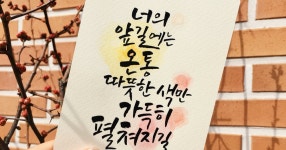 너의
앞길에는
온통
따뜻한 색만
가득히
펼쳐지길